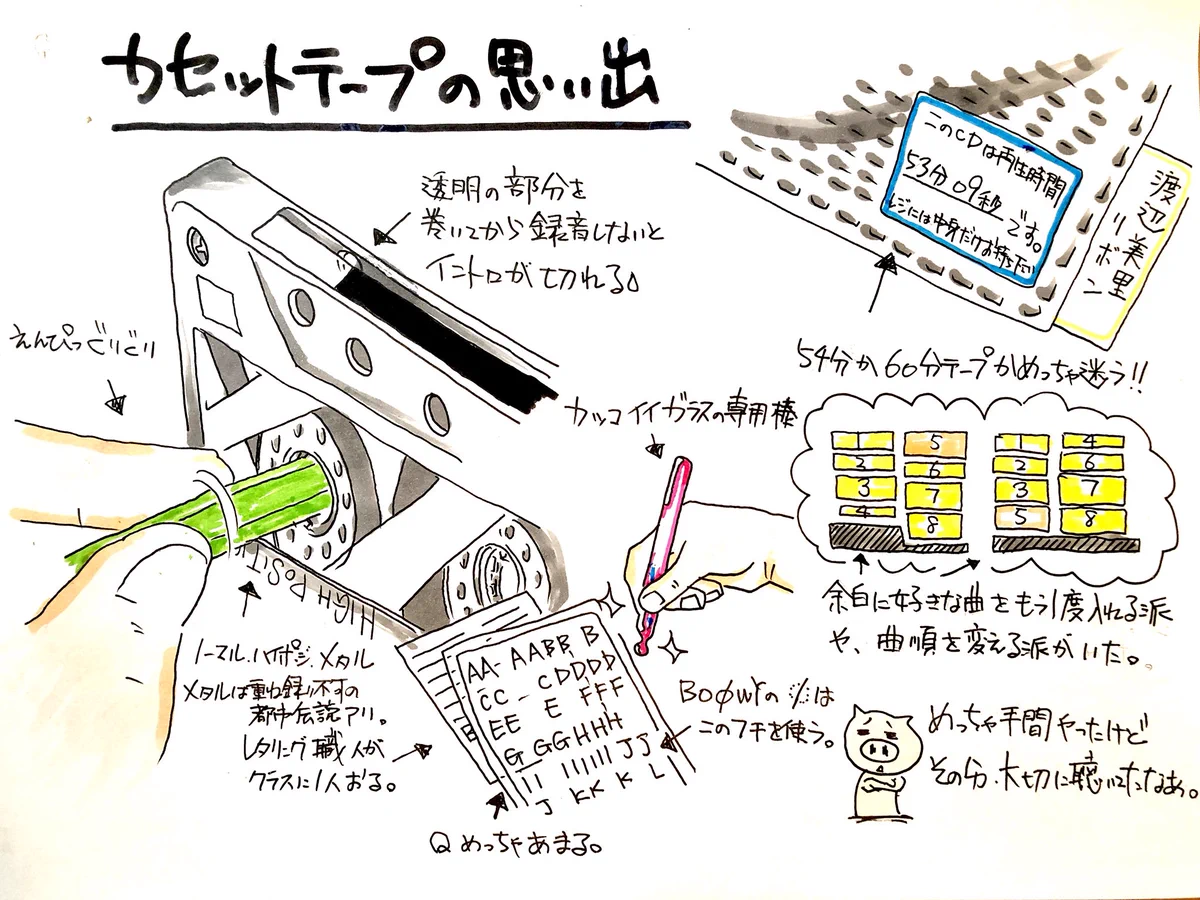 カセットテープの思い出
透明の部分を
巻いてから録音しないと
イントロが切れる。
このCDは再生時間
53分09秒です。
レジには中身だけお持ち下さい
渡辺美里
リボン
54分か60分テープかめっちゃ迷う!!
えんぴつぐりぐり
カッコイイガラスの専用棒
1 5
2 6
3 7
4 8
1 4
2 6
3 7
5 8
余白に好きな曲をもう1度入れる派
や、曲順を変える派がいた。
HIGH POSIT
ノーマル、ハイポジ、メタル
メタルは重ね録り不可の
都市伝説アリ。
レタリング職人が
クラスに1人おる。
AA-AABB B
CC - CDDDD
EE E FFF
G GGHHH
II IIIIII JJ
J KK K L
BOØWYの
は
このフチを使う。
Qめっちゃあまる。
めっちゃ手間やったけど
その分、大切に聴いてたなあ。